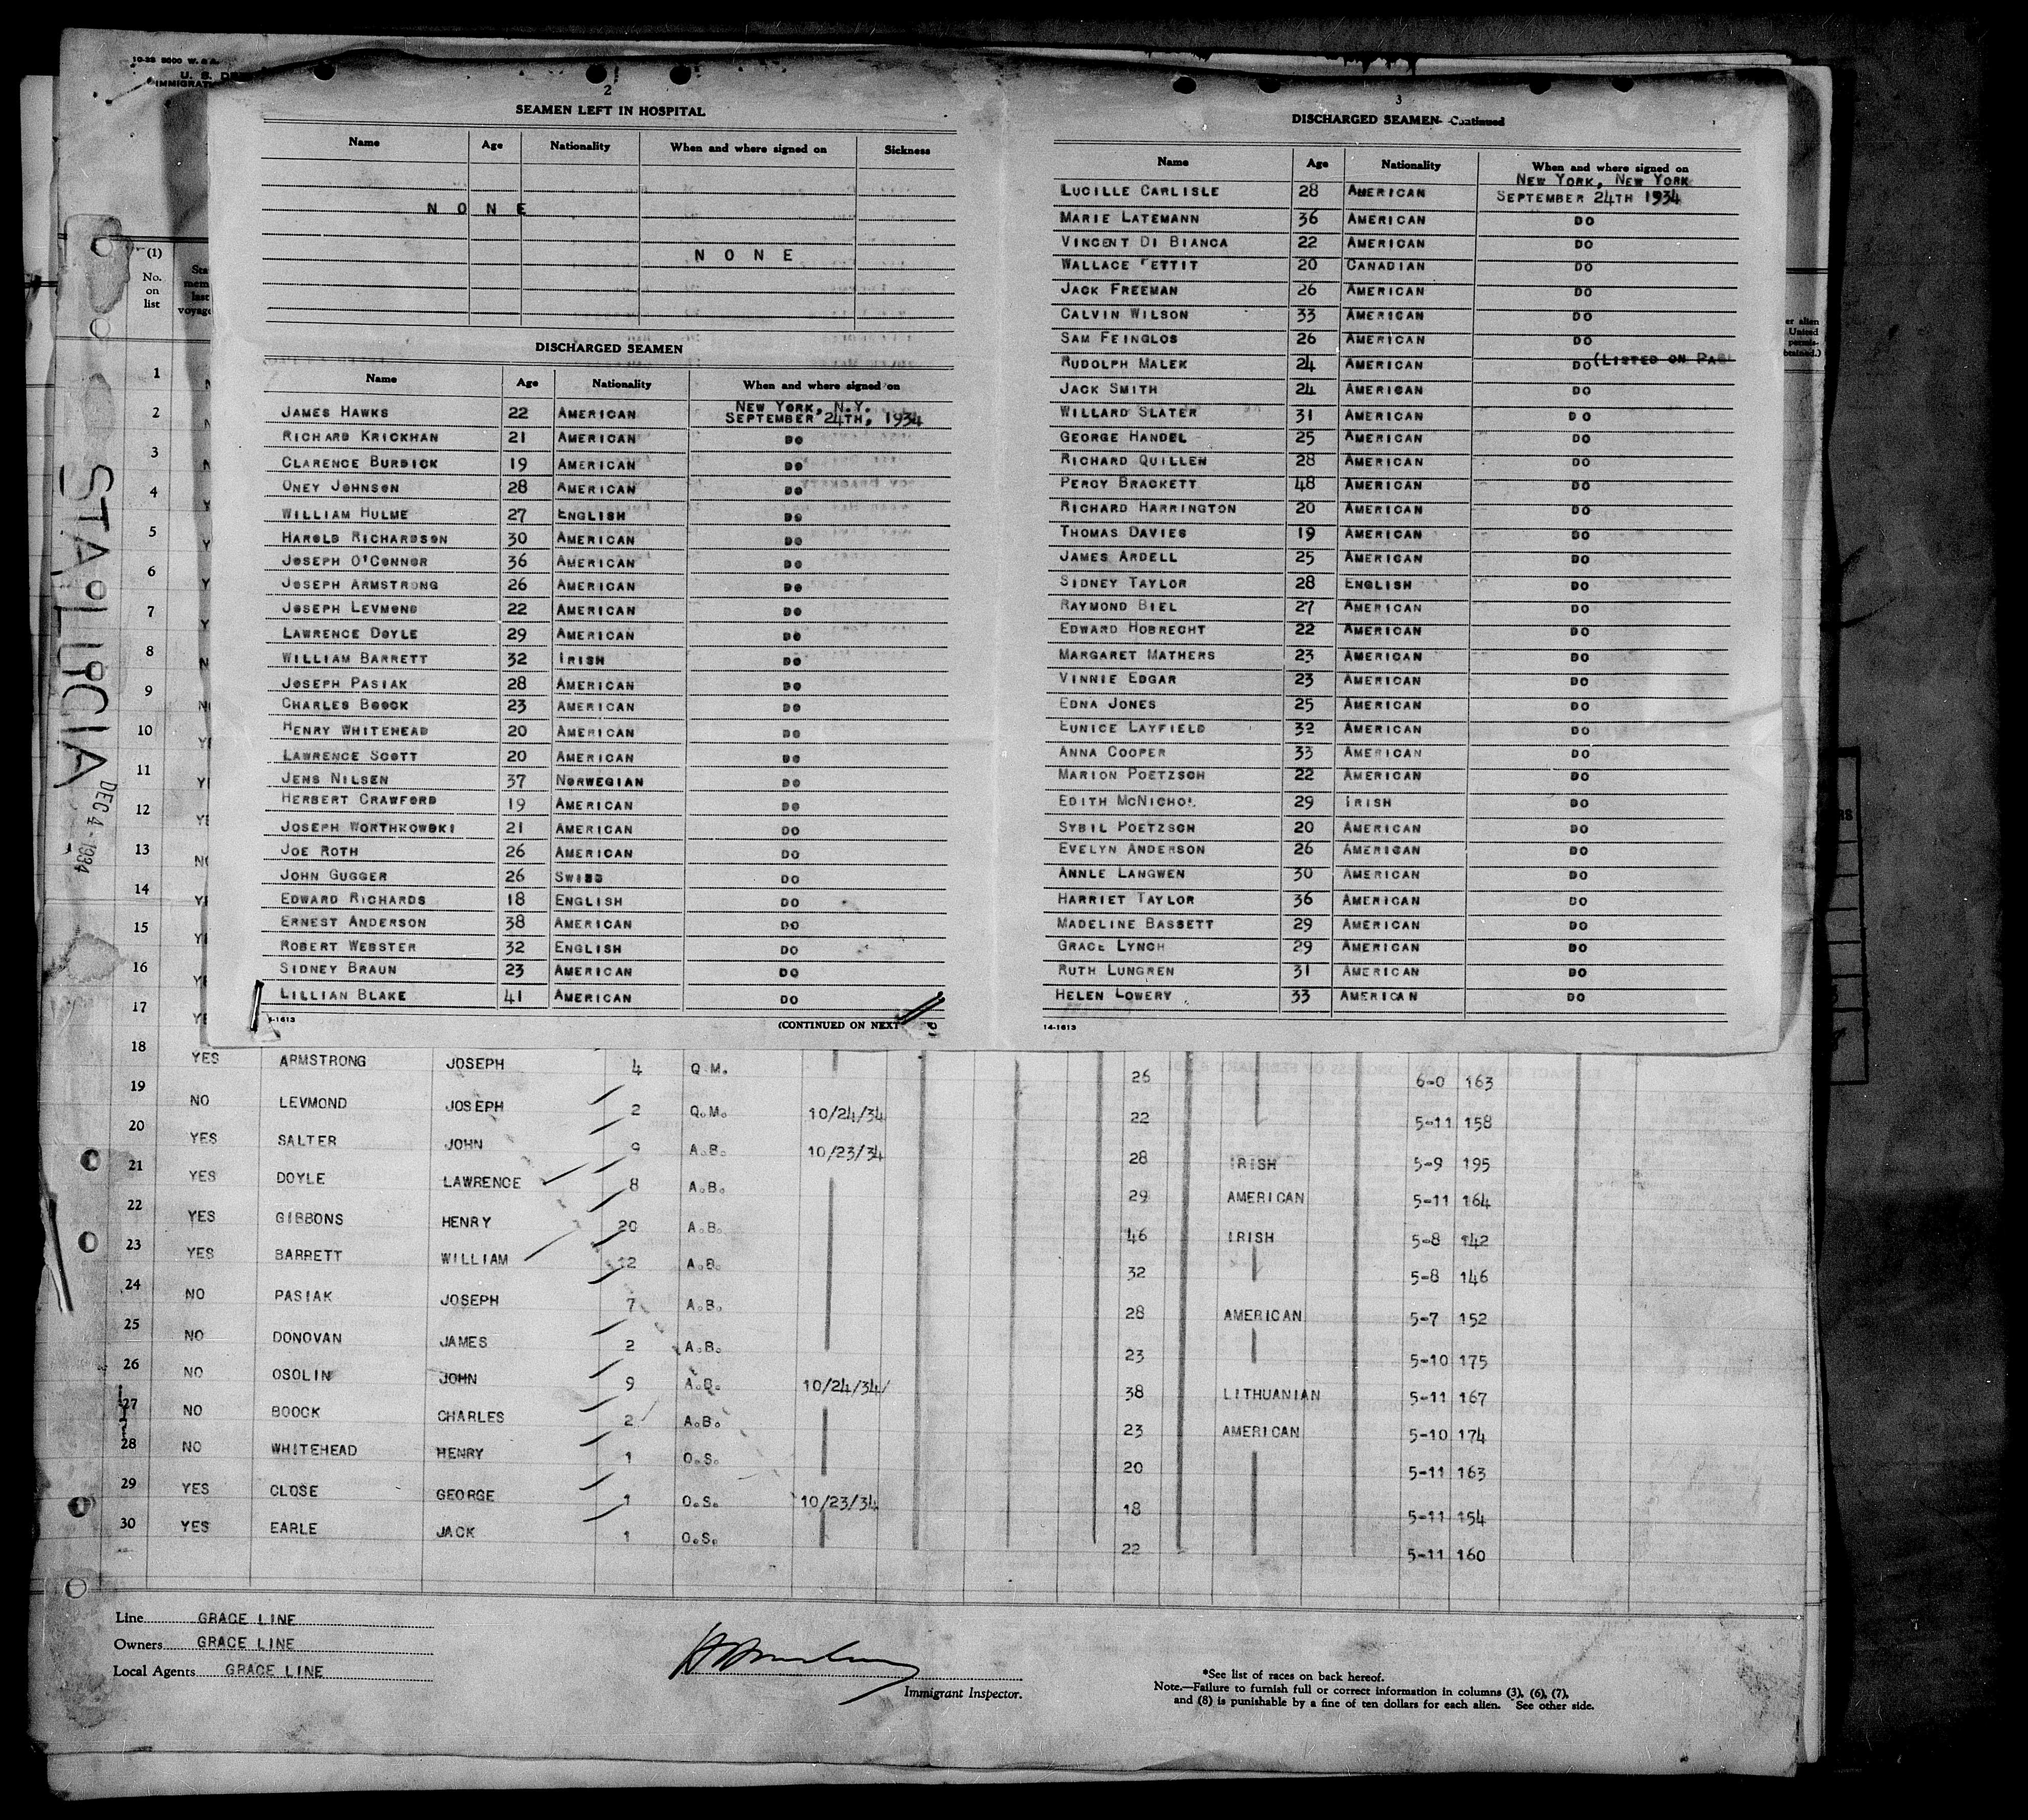 10-33 5000 W. & A.
U. S. DE
IMMIGRAT
(1)
No.
on
list
Sta
mem
last
voyage
er alien
United
permis-
btained.)
STA. LUCIA
DEC 4 - 1934
2
SEAMEN LEFT IN HOSPITAL
Name Age Nationality When and where signed on Sickness
NONE
NONE
DISCHARGED SEAMEN
Name Age Nationality When and where signed on
JAMES HAWKS 22 AMERICAN NEW YORK, N.Y. SEPTEMBER 24TH, 1934
RICHARD KRICKHAN 21 AMERICAN DO
CLARENCE BURDICK 19 AMERICAN DO
ONEY JOHNSON 28 AMERICAN DO
WILLIAM HULME 27 ENGLISH DO
HAROLD RICHARDSON 30 AMERICAN DO
JOSEPH O'CONNOR 36 AMERICAN DO
JOSEPH ARMSTRONG 26 AMERICAN DO
JOSEPH LEVMOND 22 AMERICAN DO
LAWRENCE DOYLE 29 AMERICAN DO
WILLIAM BARRETT 32 IRISH DO
JOSEPH PASIAK 28 AMERICAN DO
CHARLES BOOCK 23 AMERICAN DO
HENRY WHITEHEAD 20 AMERICAN DO
LAWRENCE SCOTT 20 AMERICAN DO
JENS NILSEN 37 NORWEGIAN DO
HERBERT CRAWFORD 19 AMERICAN DO
JOSEPH WORTHKOWSKI 21 AMERICAN DO
JOE ROTH 26 AMERICAN DO
JOHN GUGGER 26 SWISS DO
EDWARD RICHARDS 18 ENGLISH DO
ERNEST ANDERSON 38 AMERICAN DO
ROBERT WEBSTER 32 ENGLISH DO
SIDNEY BRAUN 23 AMERICAN DO
LILLIAN BLAKE 41 AMERICAN DO
-1613 (CONTINUED ON NEXT
3
DISCHARGED SEAMEN- Continued
Name Age Nationality When and where signed on
LUCILLE CARLISLE 28 AMERICAN NEW YORK, NEW YORK SEPTEMBER 24TH 1934
MARIE LATEMANN 36 AMERICAN DO
VINCENT DI BIANCA 22 AMERICAN DO
WALLACE PETTIT 20 CANADIAN DO
JACK FREEMAN 26 AMERICAN DO
CALVIN WILSON 33 AMERICAN DO
SAM FEINGLOS 26 AMERICAN DO
RUDOLPH MALEK 24 AMERICAN DO (LISTED ON PAG
JACK SMITH 24 AMERICAN DO
WILLARD SLATER 31 AMERICAN DO
GEORGE HANDEL 25 AMERICAN DO
RICHARD QUILLEN 28 AMERICAN DO
PERCY BRACKETT 48 AMERICAN DO
RICHARD HARRINGTON 20 AMERICAN DO
THOMAS DAVIES 19 AMERICAN DO
JAMES ARDELL 25 AMERICAN DO
SIDNEY TAYLOR 28 ENGLISH DO
RAYMOND BIEL 27 AMERICAN DO
EDWARD HOBRECHT 22 AMERICAN DO
MARGARET MATHERS 23 AMERICAN DO
VINNIE EDGAR 23 AMERICAN DO
EDNA JONES 25 AMERICAN DO
EUNICE LAYFIELD 32 AMERICAN DO
ANNA COOPER 33 AMERICAN DO
MARION POETZSCH 22 AMERICAN DO
EDITH MCNICHOL 29 IRISH DO
SYBIL POETZSCH 20 AMERICAN DO
EVELYN ANDERSON 26 AMERICAN DO
ANNLE LANGWEN 30 AMERICAN DO
HARRIET TAYLOR 36 AMERICAN DO
MADELINE BASSETT 29 AMERICAN DO
GRACE LYNCH 29 AMERICAN DO
RUTH LUNGREN 31 AMERICAN DO
HELEN LOWERY 33 AMERICAN DO
14-1613
1
2
3
4
5
6
7
8
9
10
11
12
13
14
15
16
17
18 YES ARMSTRONG JOSEPH 4 Q.M. 26 6-0 163
19 NO LEVMOND JOSEPH 2 Q.M. 10/24/34 22 5-11 158
20 YES SALTER JOHN 9 A.B. 10/23/34 28 IRISH 5-9 195
21 YES DOYLE LAWRENCE 8 A.B. 29 AMERICAN 5-11 164
22 YES GIBBONS HENRY 20 A.B. 46 IRISH 5-8 142
23 YES BARRETT WILLIAM 12 A.B. 32 5-8 146
24 NO PASIAK JOSEPH 7 A.B. 28 AMERICAN 5-7 152
25 NO DONOVAN JAMES 2 A.B. 23 5-10 175
26 NO OSOLIN JOHN 9 A.B. 10/24/34 38 LITHUANIAN 5-11 167
27 NO BOOCK CHARLES 2 A.B. 23 AMERICAN 5-10 174
28 NO WHITEHEAD HENRY 1 O.S. 20 5-11 163
29 YES CLOSE GEORGE 1 O.S. 10/23/34 18 5-11 154
30 YES EARLE JACK 1 O.S. 22 5-11 160
Line GRACE LINE
Owners GRACE LINE
Local Agents GRACE LINE
Immigrant Inspector.
*See list of races on back hereof.
Note.—Failure to furnish full or correct information in columns (3), (6), (7),
and (8) is punishable by a fine of ten dollars for each alien. See other side.